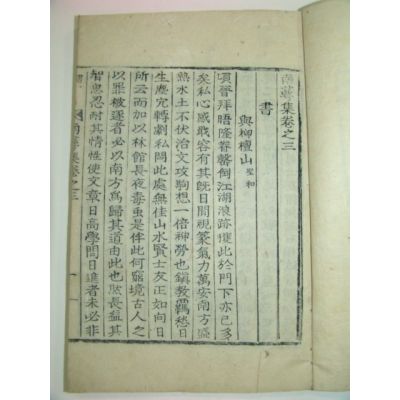 南集卷之三
書
與柳檀山 星和
頃晉拜晤隆眷罄倒江湖浪跡獲此於門下亦已多
矣私心感戢容有其旣日間視篆氣力萬安南方盛
熱水土不伏治文攻駒想一倍神勞也鎭敎羈愁日
生塵冗轉劇私悶此處無佳山水賢士友正如向日
所云而加以林館長夜毒虫是侔此何窮境古人之
以罪被逐者必以南方爲歸其道由此也然長益其
智思忍耐其情性使文章日高學問日進者未必非
南集卷之三 一